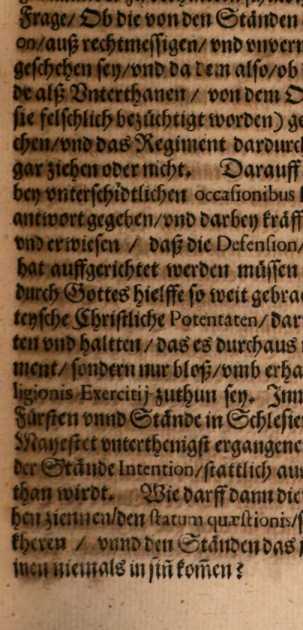 Frage/ Ob die von den Ständen
on/auß rechtmessigen/ vnd vnverm
geschehen sey/vnd da dem also/ob
de alß Vnterthanen/ von dem O
sie felschlich bezüchtigt worden) ge
chen/vnd das Regiment dardurch
gar ziehen oder nicht. Darauff
bey vnterschidtlichen occasionibus
antwort gegeben/vnd darbey kräff
vnd erwiesen / daß die Defension/
hat auffgerichtet werden müssen
durch Gottes hielffe so weit gebra
teysche Christliche Potentaten/ dar
ten vnd haltten/ das es durchaus
ment/ sondern nur bloß/vmb erha
ligionis Exercitij zuthun sey. Inn
Fürsten vnnd Stände in Schlesie
Mayestet vnterthenigst ergangene
der Stände Intention/stattlich au
than wirdt. Wie darff dann die
hen ziennen/den statum quæstionis/
kheren / vnnd den Ständen das
men niemals in sin̄ kom̄en?